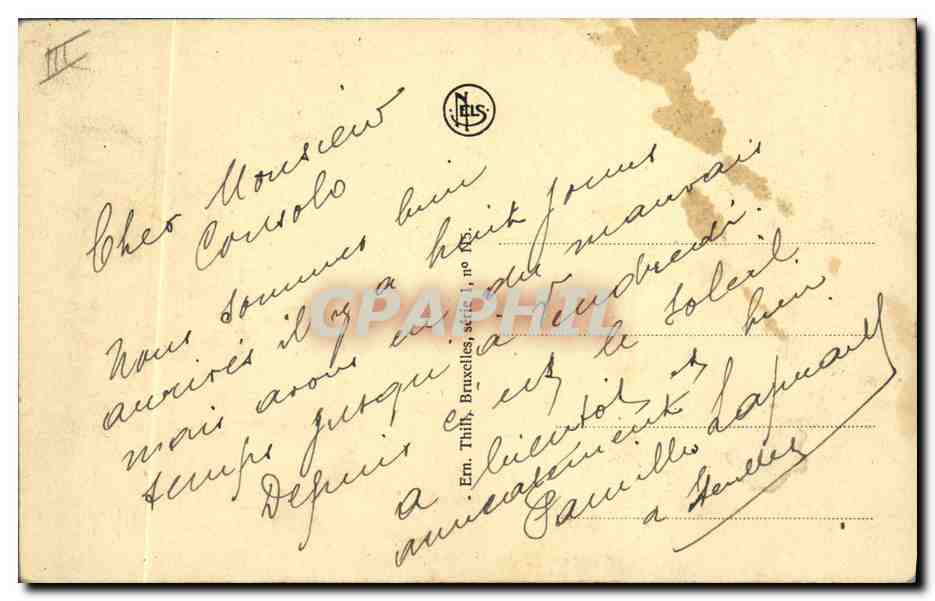 III
NELS
Cher Monsieur
Consolo
Nous sommes bien
arrivés il y a huit jours
mais avons eu du mauvais
temps jusqu'à vendredi.
Depuis c'est le soleil.
a bientot et bien
amicalement
Camille
a
Ern. Thill, Bruxelles, série 1, n°
CPAPHIL